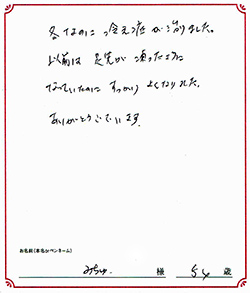 冬なのに冷え症が治りました。
以前は足先が凍ったように
なっていたのにすっかりよくなりました。
ありがとうございます。
お名前(本名orペンネーム)
みちゅ 様 54 歳